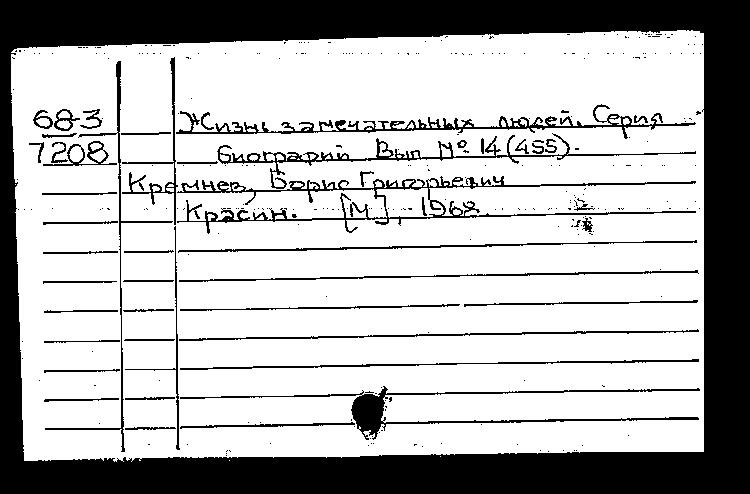 68-3 Жизнь замечательных людей. Серия
7208 биографий Вып № 14 (455).
Кремнев, Борис Григорьевич
Красин. [М], 1968